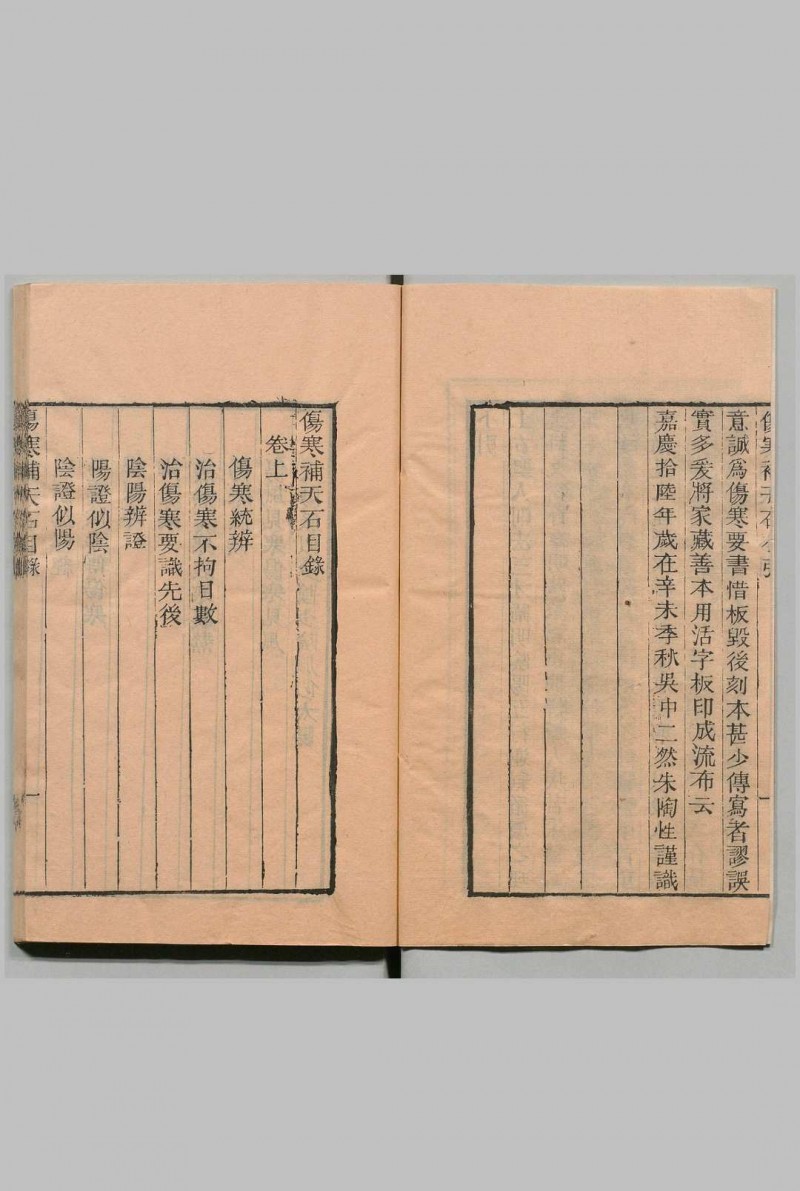 傷寒補天石小引
一
意誠為傷寒要書惜板毀後刻本甚少傳寫者謬誤
實多爰將家藏善本用活字板印成流布云
嘉慶拾陸年歲在辛未季秋吳中二然朱陶性謹識
傷寒補天石目錄
卷上
傷寒統辨
治傷寒不拘日數
治傷寒要識先後
陰陽辨證
陽證似陰
陰證似陽
傷寒補天石目錄
一